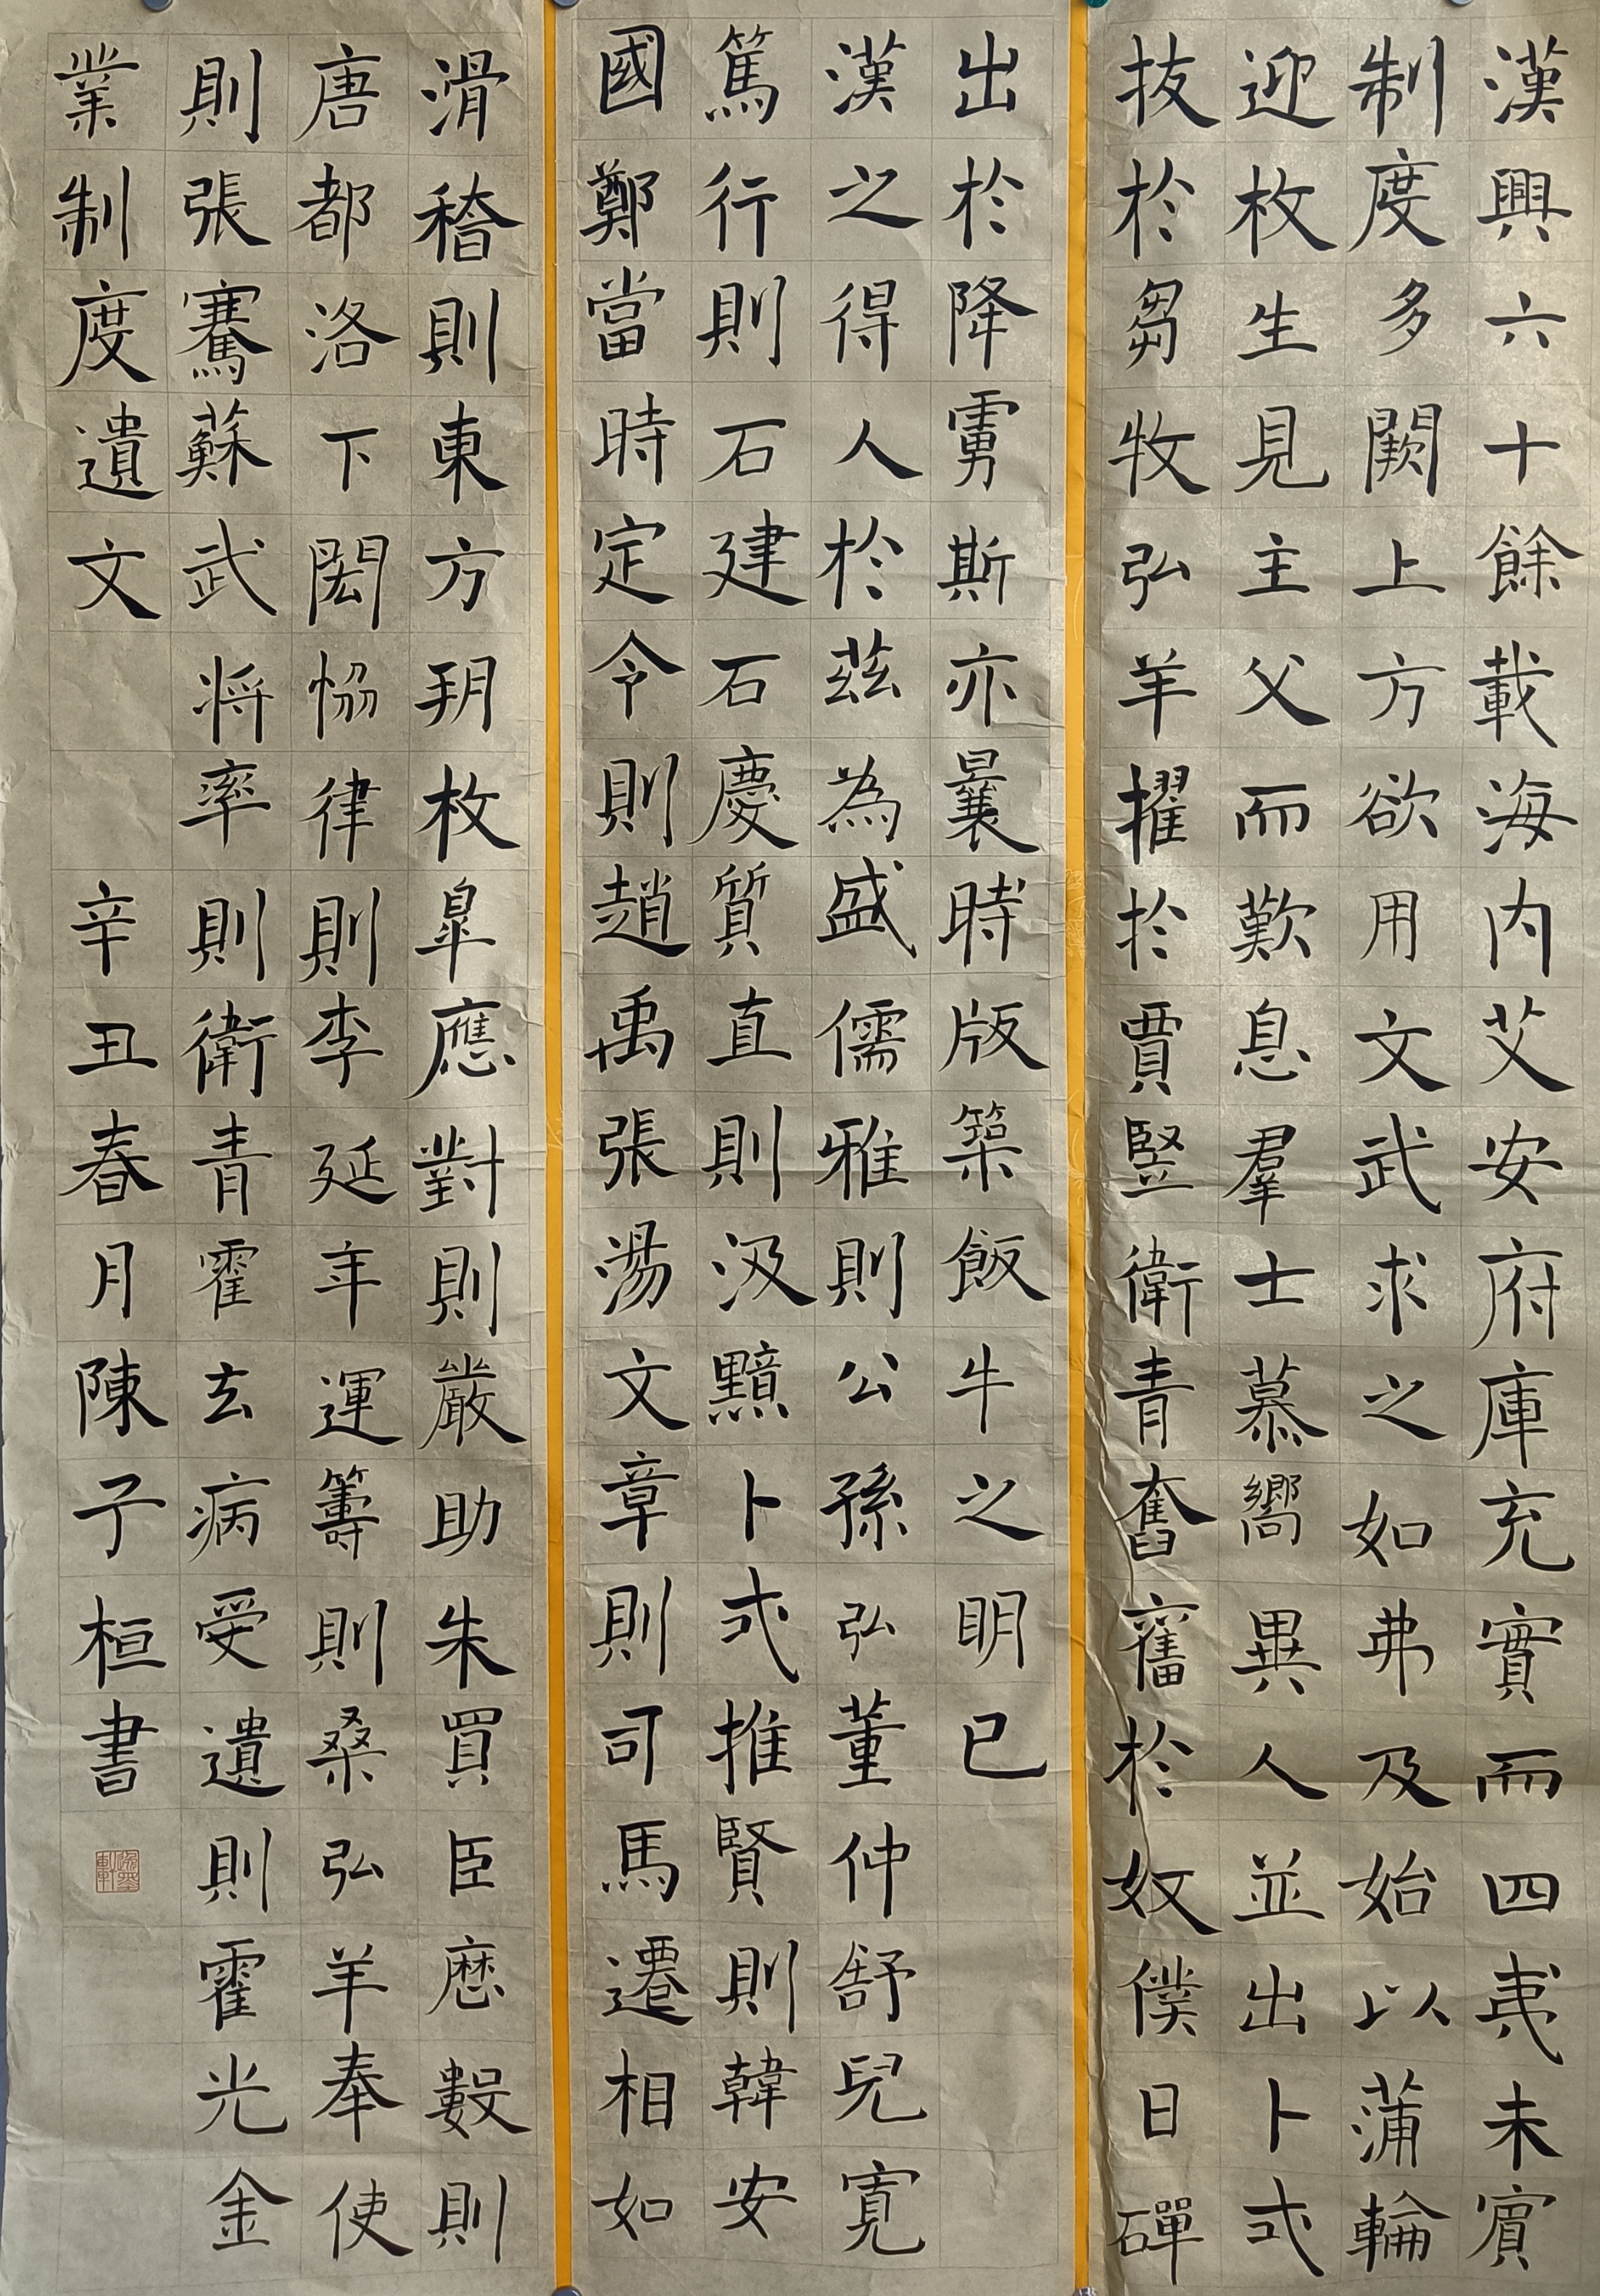 漢興六十餘載海内艾安府庫充實而四夷未賓
制度多闕上方欲用文武求之如弗及始以蒲輪
迎枚生見主父而歎息羣士慕嚮異人並出卜式
拔於芻牧弘羊擢於賈豎衛青奮奮於奴僕日磾
出於降虜斯亦曩時版築飯牛之明已
漢之得人於茲為盛儒雅則公孫弘董仲舒兒寬
篤行則石建石慶質直則汲黯卜式推賢則韓安
國鄭當時定令則趙禹張湯文章則司馬遷相如
滑稽則東方朔枚皐應對則嚴助朱買臣歷數則
唐都洛下閎恊律則李延年運籌則桑弘羊奉使
則張騫蘇武将率則衛青霍去病受遺則霍光金
業制度遺文
辛丑春月陳子桓書